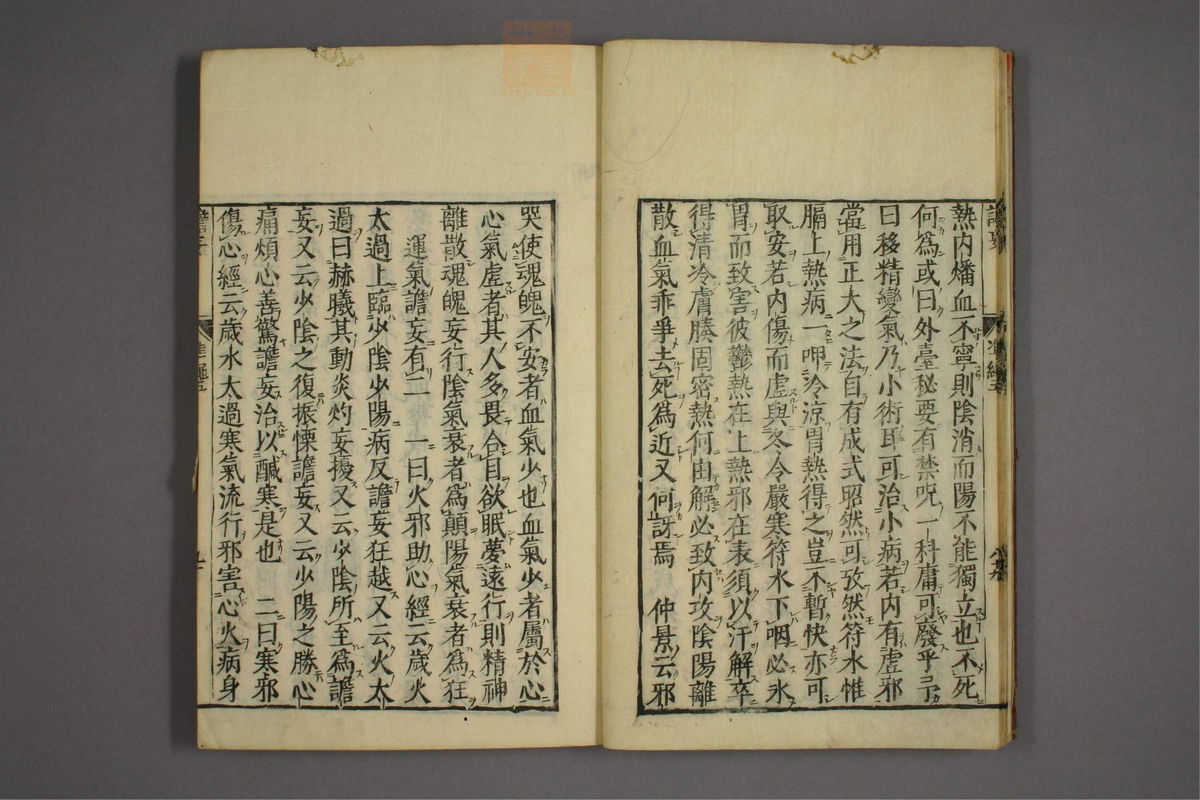 熱內燔血不寧則陰消而陽不能獨立也不死
何爲或曰外臺秘要有禁呪一科庸可廢乎予
曰移精變氣乃小術耳可治小病若內有虛邪
當用正大之法自有成式昭然可攷然符水惟
膈上熱病一呷冷涼胃熱得之豈不暫快亦可
取安若內傷而虛與冬令嚴寒符水下咽必氷
胃而致害彼鬱熱在上熱邪在表須以汗解卒
得清冷膚腠固密熱何由解必致內攻陰陽離
散血氣乖爭去死爲近又何訝焉　仲景云邪
哭使魂魄不安者血氣少也血氣少者屬於心
心氣虛者其人多畏合目欲眠夢遠行則精神
離散魂魄妄行陰氣衰者爲顛陽氣衰者爲狂
運氣譫妄有二　一曰火邪助心經云歲火
太過上臨少陰少陽病反譫妄狂越又云火太
過曰赫曦其動炎灼妄擾又云少陰所至爲譫
妄又云少陰之復振慄譫妄又云少陽之勝心
痛煩心善驚譫妄治以鹹寒是也　二曰寒邪
傷心經云歲水太過寒氣流行邪害心火病身